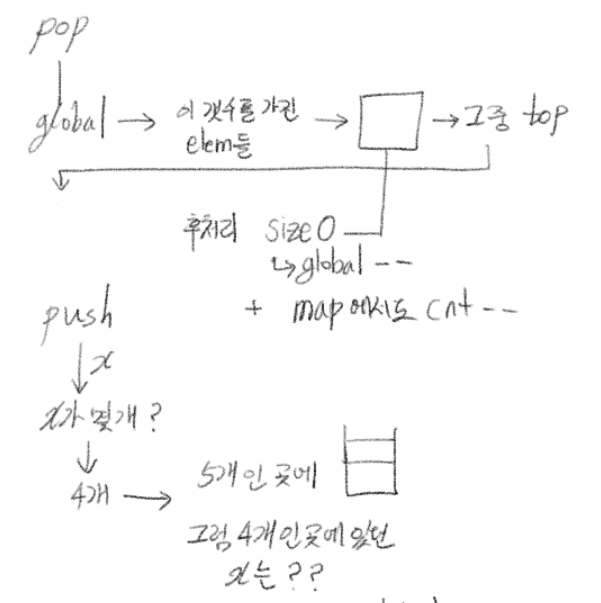 pop
global → 이 갯수를 가진 elem들 → → 그중 top
후처리 size 0
↳ global --
+ map에서도 cnt --
push
↓ x
x가 몇개?
↓
4개 → 5개인 곳에
그럼 4개인곳에 있던
x는 ??